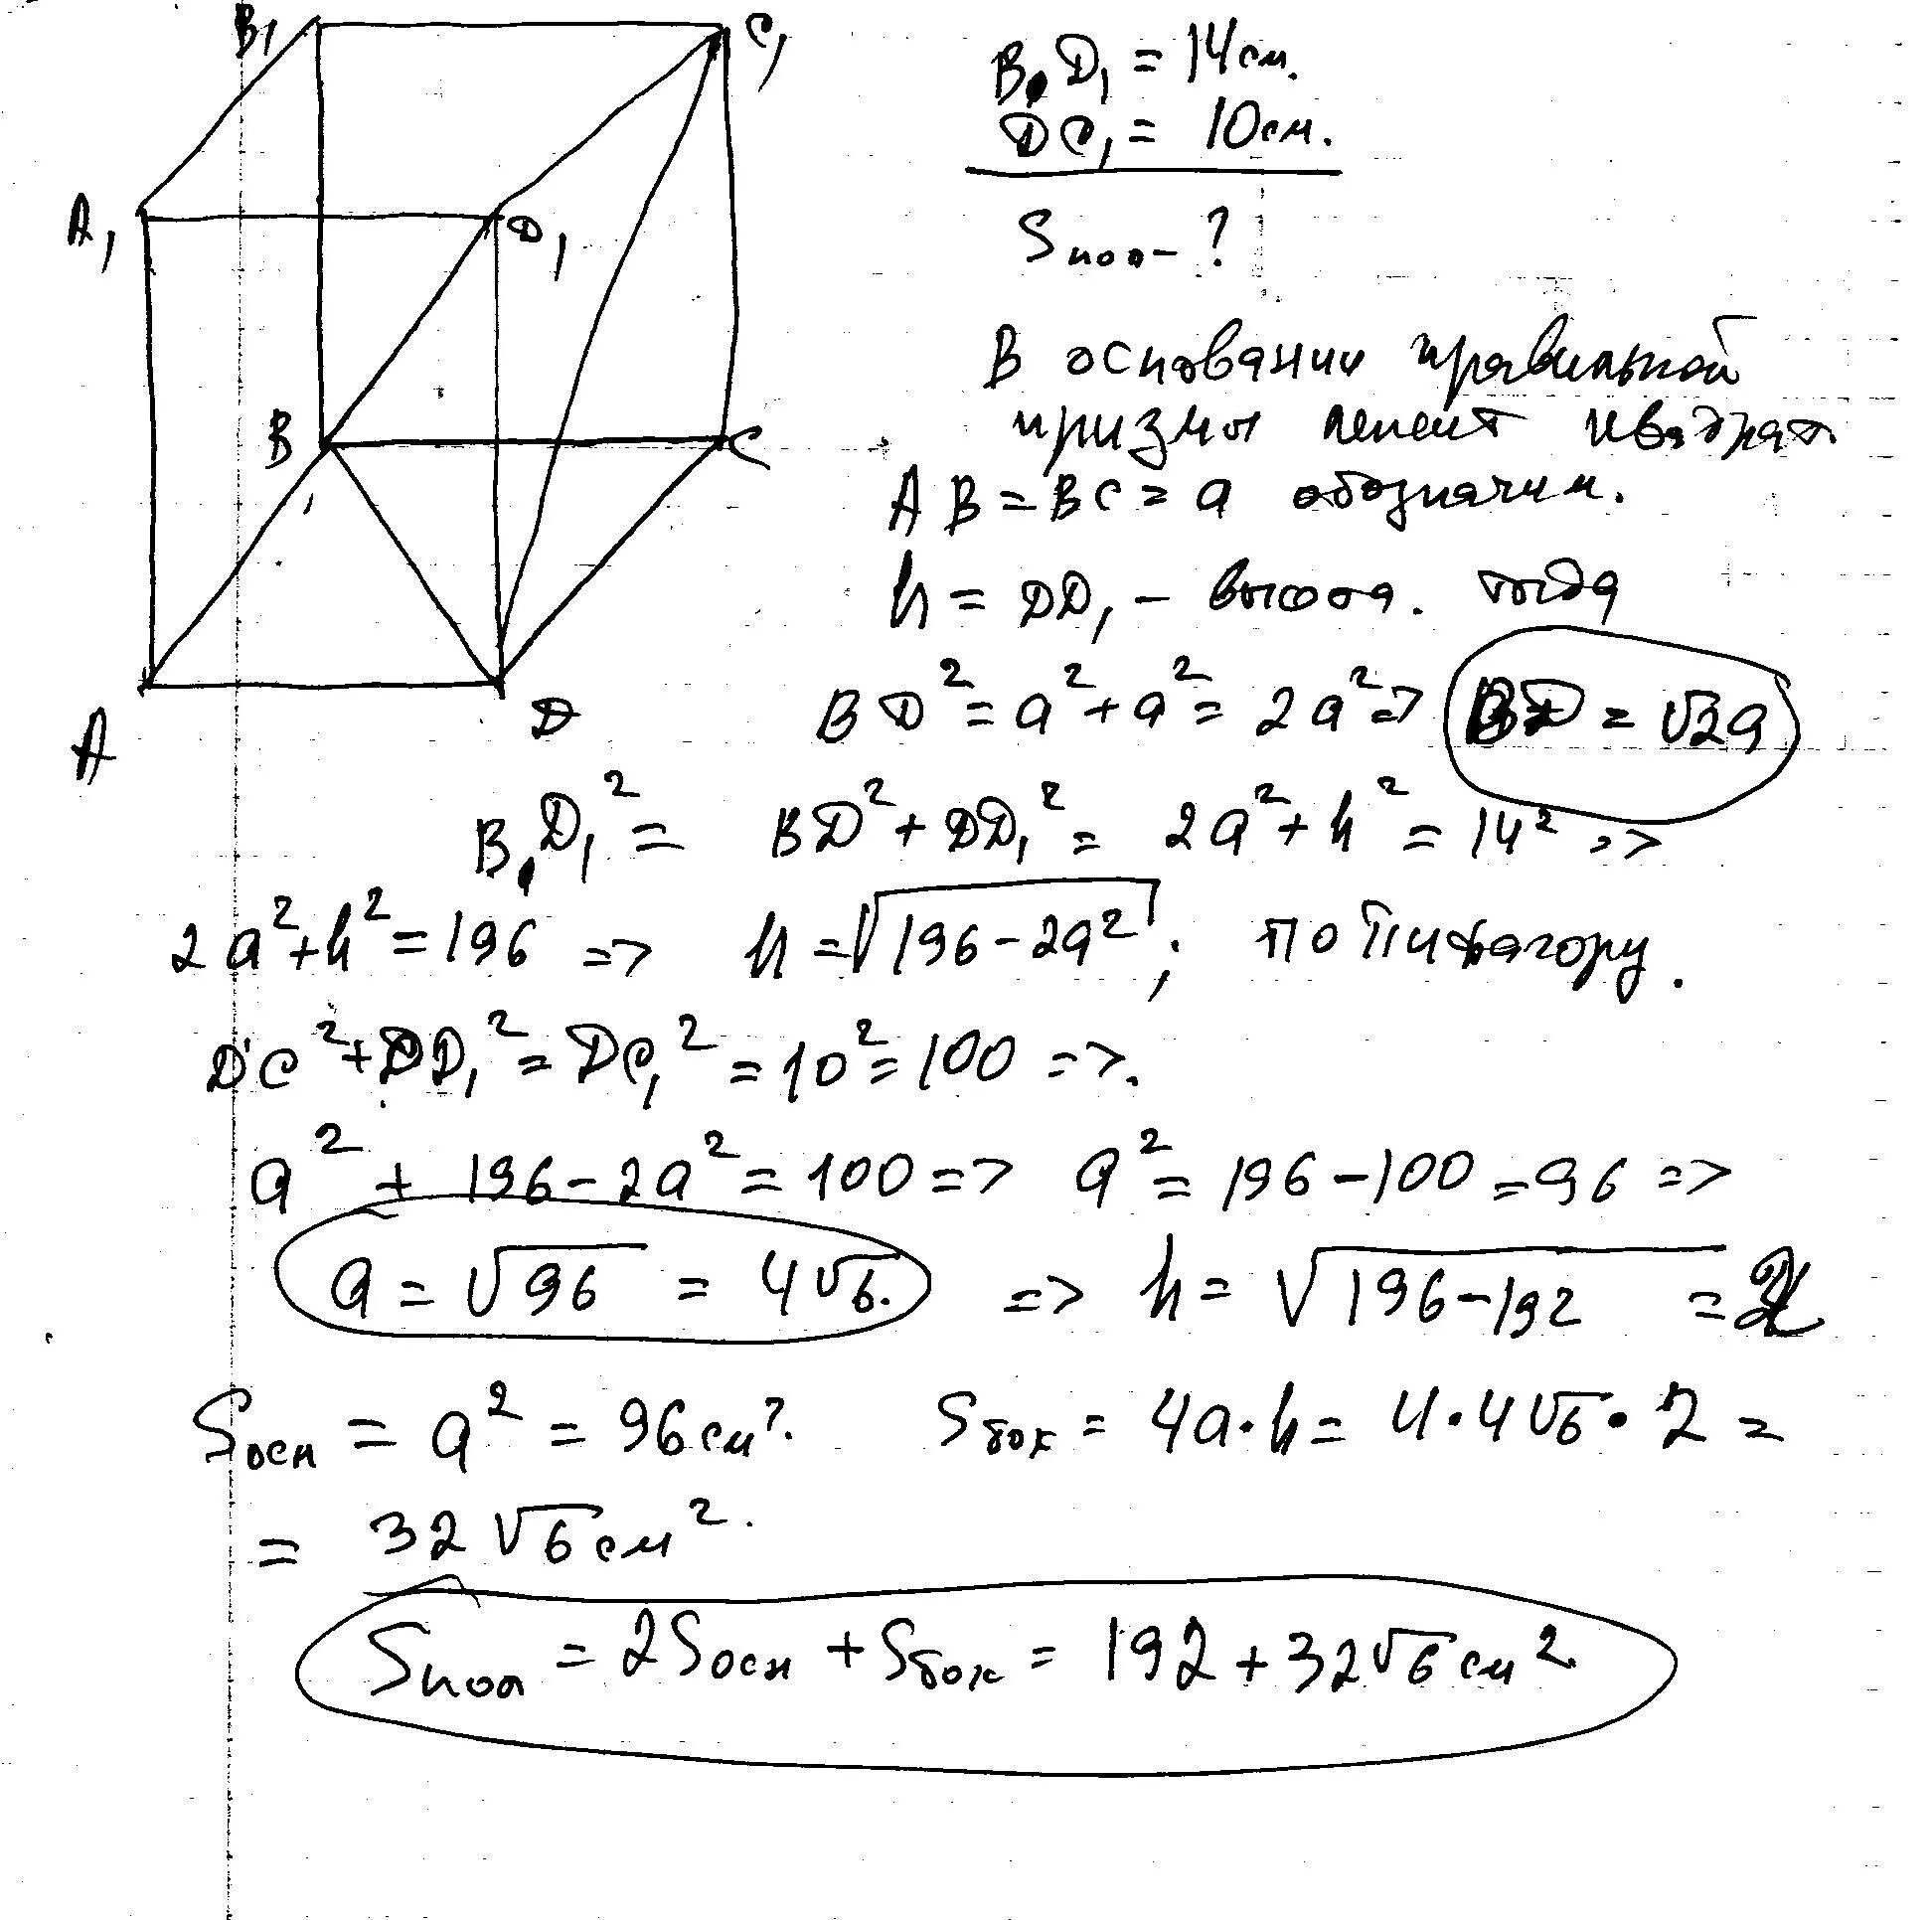 B₁
C₁
A₁
D₁
B
C
A
D
B.D₁ = 14 см.
DC₁ = 10 см.
Sпол - ?
В основании правильной
призмы лежит квадрат
AB = BC = a обозначим.
h = DD₁ - высота. тогда
BD² = a² + a² = 2a² => BD = √2a
B.D₁² = BD² + DD₁² = 2a² + h² = 14² =>
2a² + h² = 196 => h = √196 - 2a² ; по Пифагору.
DC² + DD₁² = DC₁² = 10² = 100 =>.
a² + 196 - 2a² = 100 => a² = 196 - 100 = 96 =>
a = √96 = 4√6. => h = √196 - 192 = 2
Sосн = a² = 96 см². Sбок = 4a·h = 4·4√6·2 =
= 32√6 см².
Sпол = 2Sосн + Sбок = 192 + 32√6 см²